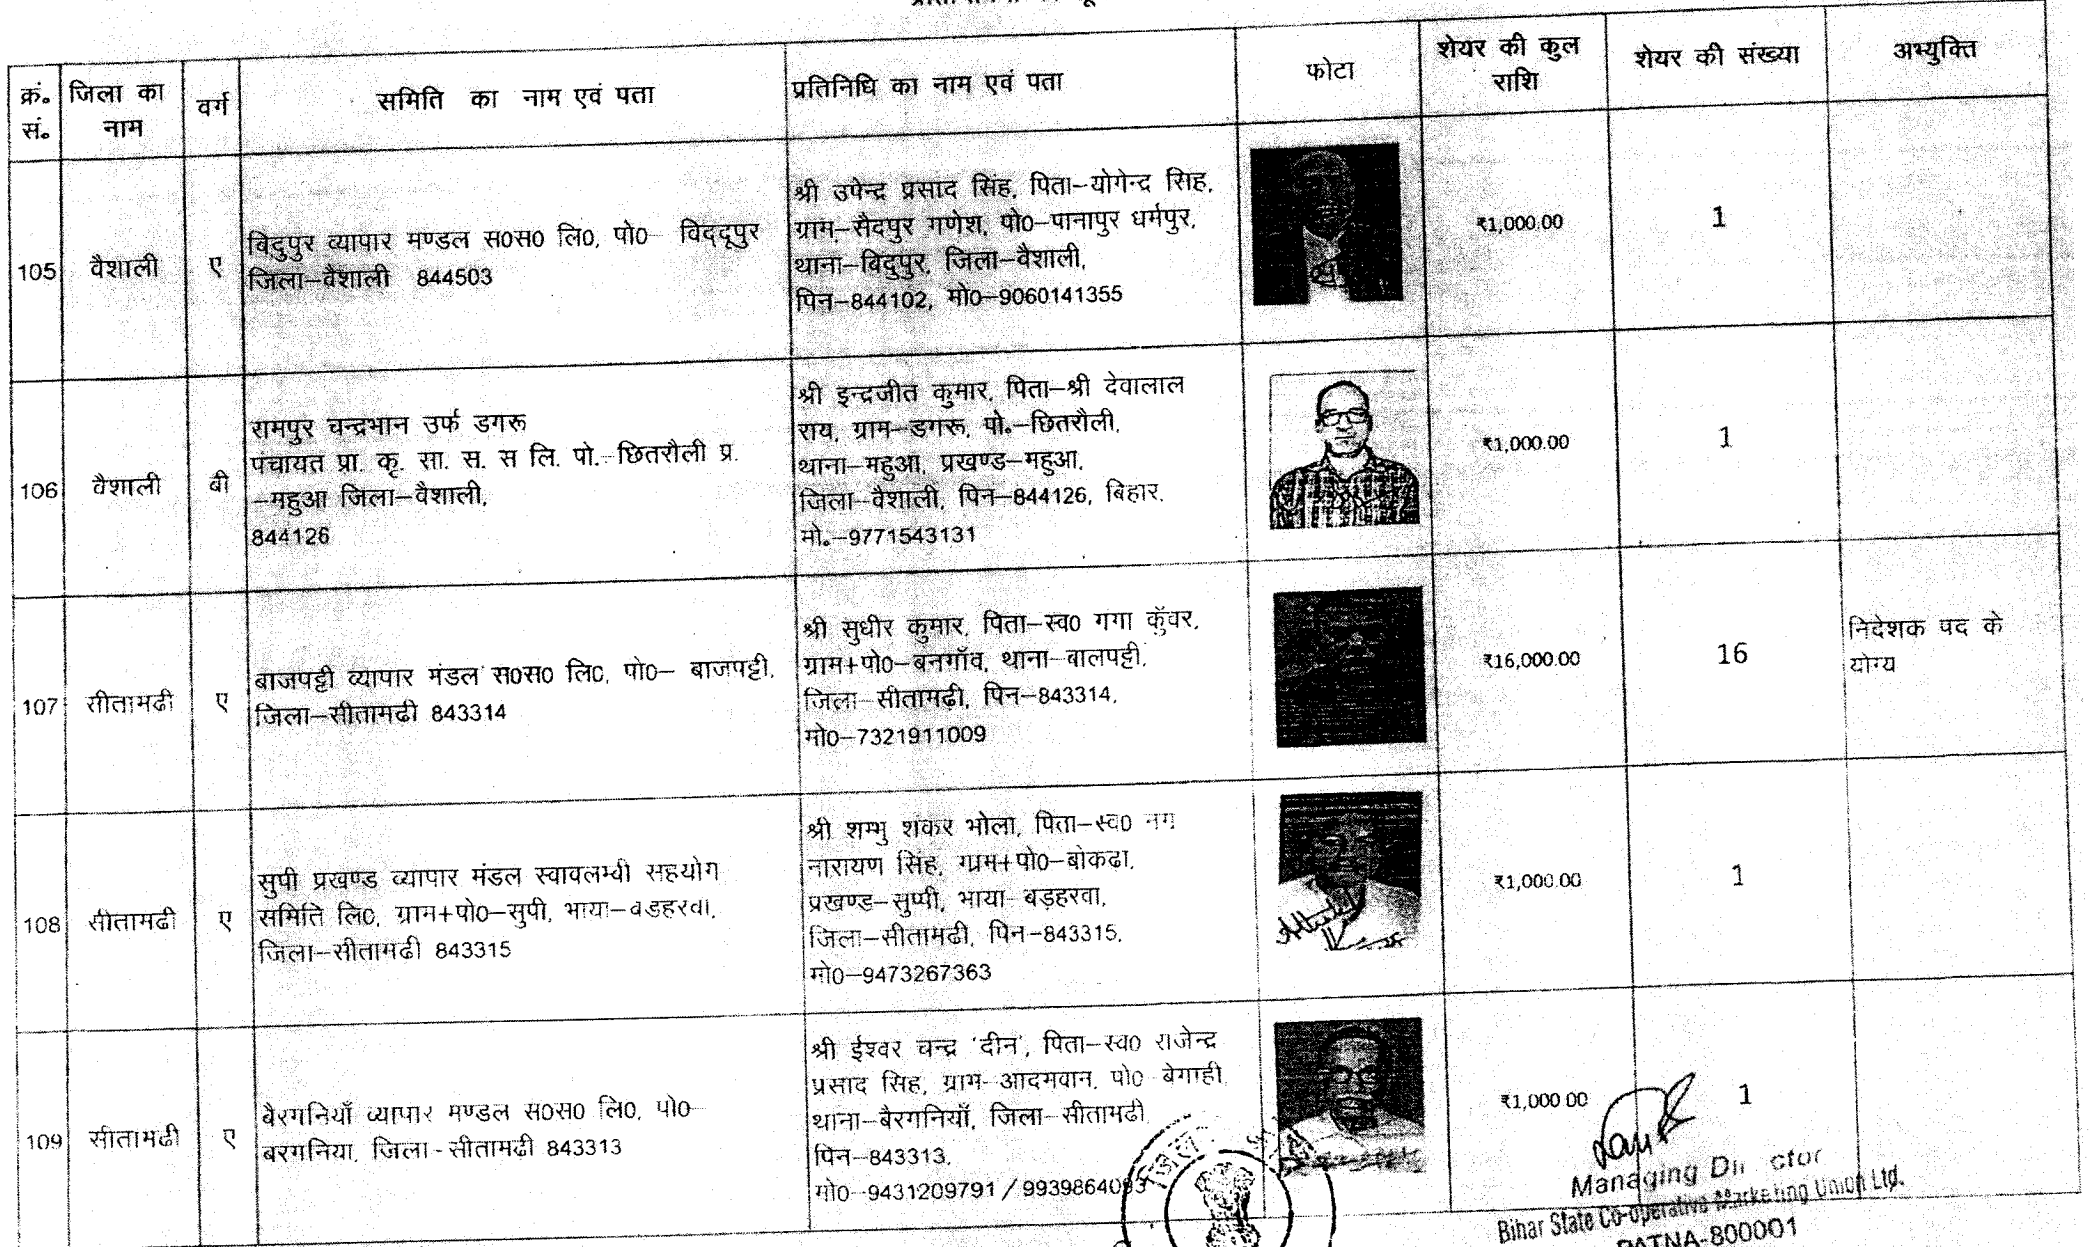 क्रं. सं. जिला का नाम वर्ग समिति का नाम एवं पता प्रतिनिधि का नाम एवं पता फोटा शेयर की कुल राशि शेयर की संख्या अभ्युक्ति
105 वैशाली ए
बिदुपुर व्यापार मण्डल स0स0 लि0, पो0- विद्दूपुर
जिला-वैशाली 844503
श्री उपेन्द्र प्रसाद सिंह, पिता-योगेन्द्र सिह,
ग्राम-सैदपुर गणेश, पो0-पानापुर धर्मपुर,
थाना-बिदुपुर, जिला-वैशाली,
पिन-844102, मो0-9060141355
₹1,000.00
1
106 वैशाली बी
रामपुर चन्द्रभान उर्फ डगरू
पंचायत प्रा. कृ. सा. स. स लि. पो.-छितरौली प्र.
-महुआ जिला-वैशाली,
844126
श्री इन्द्रजीत कुमार, पिता-श्री देवालाल
राय, ग्राम-डगरू, पो.-छितरौली,
थाना-महुआ, प्रखण्ड-महुआ,
जिला-वैशाली, पिन-844126, बिहार,
मो.-9771543131
₹1,000.00
1
107 सीतामढी ए
बाजपट्टी व्यापार मंडल स0स0 लि0, पो0- बाजपट्टी,
जिला-सीतामढी 843314
श्री सुधीर कुमार, पिता-स्व0 गगा कुँवर,
ग्राम+पो0-बनगॉव, थाना-बालपट्टी,
जिला-सीतामढ़ी, पिन-843314,
मो0-7321911009
₹16,000.00
16
निदेशक पद के
योग्य
108 सीतामढी ए
सुपी प्रखण्ड व्यापार मंडल स्वावलम्वी सहयोग
समिति लि0, ग्राम+पो0-सुपी, भाया-बडहरवा,
जिला-सीतामढी 843315
श्री शम्भु शंकर भोला, पिता-स्व0
नारायण सिंह, ग्राम+पो0-बोकढा,
प्रखण्ड-सुप्पी, भाया बड़हरवा,
जिला-सीतामढी, पिन-843315,
मो0-9473267363
₹1,000.00
1
109 सीतामढी ए
बैरगनियाँ व्यापार मण्डल स0स0 लि0, पो0-
बरगनिया, जिला-सीतामढी 843313
श्री ईश्वर चन्द्र 'दीन', पिता-स्व0 राजेन्द्र
प्रसाद सिह, ग्राम-आदमवान, पो0 बेगाही,
थाना-बैरगनियाँ, जिला-सीतामढी
पिन-843313,
मो0-9431209791 / 9939864093
₹1,000.00
1
Managing Director
Bihar State Co-operative Marketing Union Ltd.
PATNA-800001